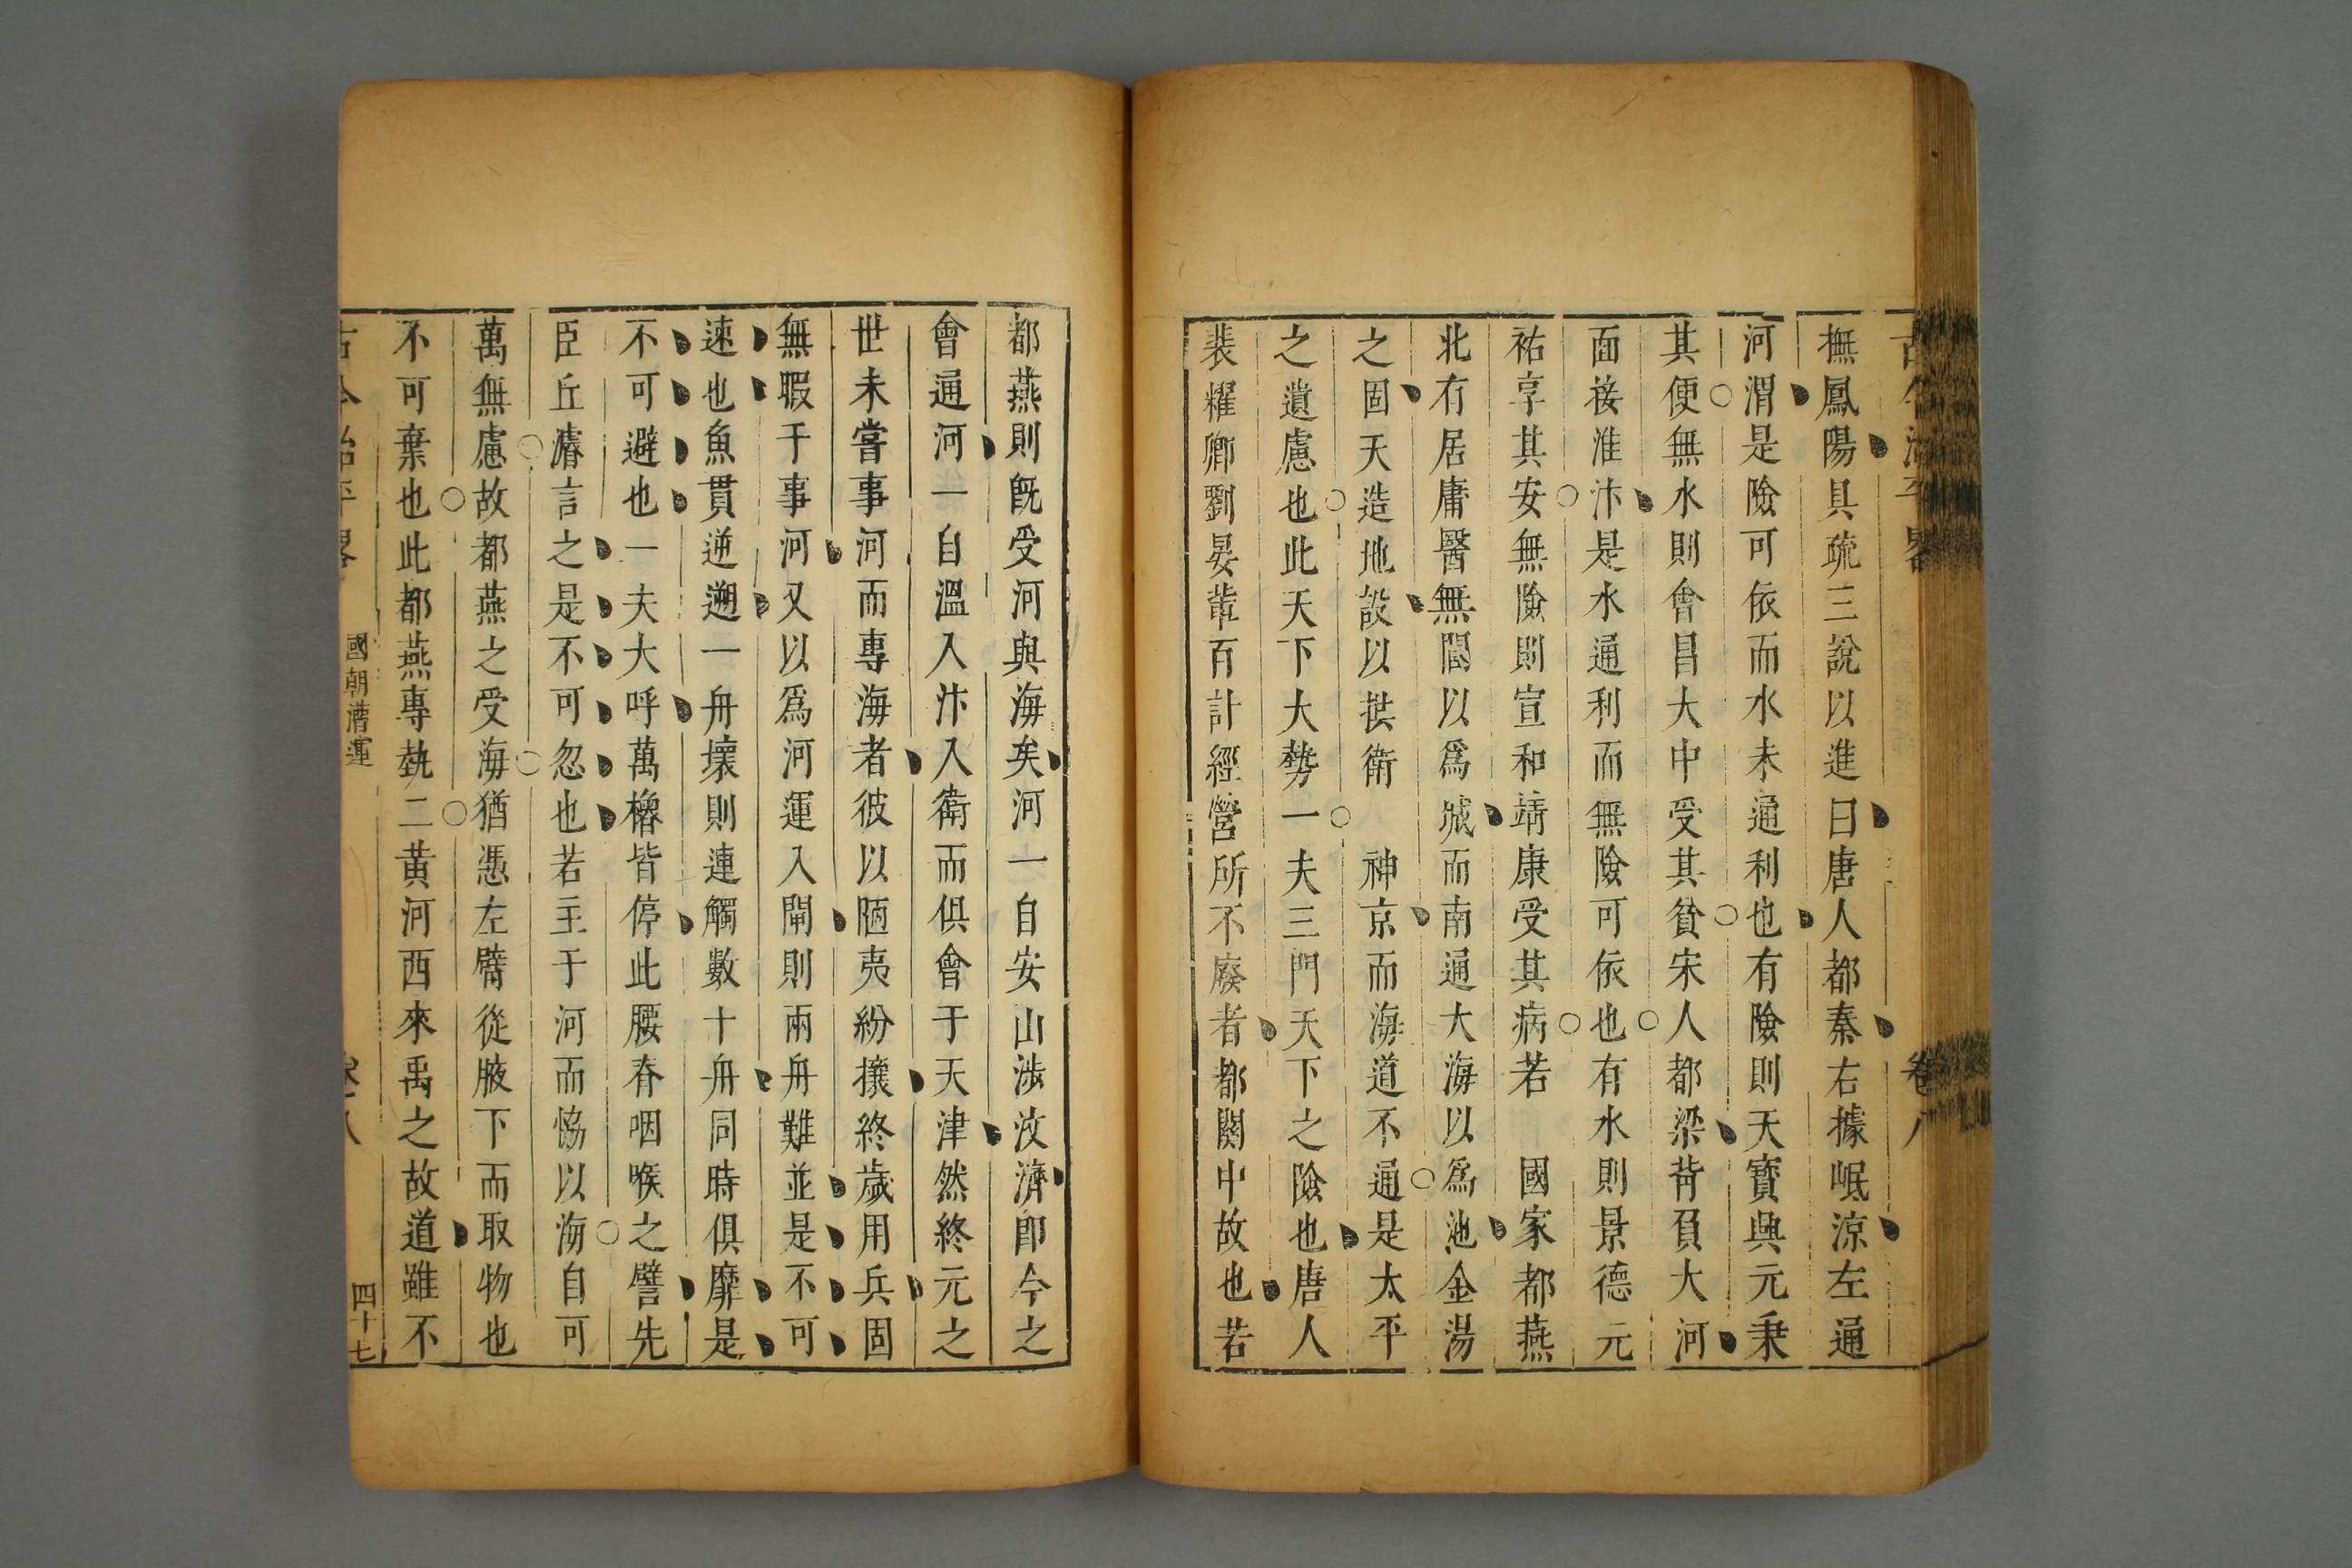 古今治平畧 卷八
撫鳳陽具疏三說以進曰唐人都秦右據岷涼左通
河渭是險可依而水未通利也有險則天寶興元秉
其便無水則會昌大中受其貧宋人都梁背負大河
面接淮汴是水通利而無險可依也有水則景德元
祐享其安無險則宣和靖康受其病若 國家都燕
北有居庸醫無閭以爲城而南通大海以爲池金湯
之固天造地設以拱衛 神京而海道不通是太平
之遺慮也此天下大勢一夫三門天下之險也唐人
裴耀卿劉晏輩百計經營所不廢者都關中故也若
都燕則既受河與海矣河一自安山涉汶濟卽今之
會通河一自溫入汴入衛而俱會于天津然終元之
世未嘗事河而專海者彼以陋夷紛攘終歲用兵固
無暇于事河又以爲河運入閘則兩舟難並是不可
速也魚貫逆遡一舟壞則連觸數十舟同時俱靡是
不可避也一夫大呼萬櫓皆停此腰脊咽喉之譬先
臣丘濬言之是不可忽也若主于河而恊以海自可
萬無慮故都燕之受海猶憑左臂從腋下而取物也
不可棄也此都燕專埶二黃河西來禹之故道雖不
古今治平畧 國朝漕運 卷八 四十七